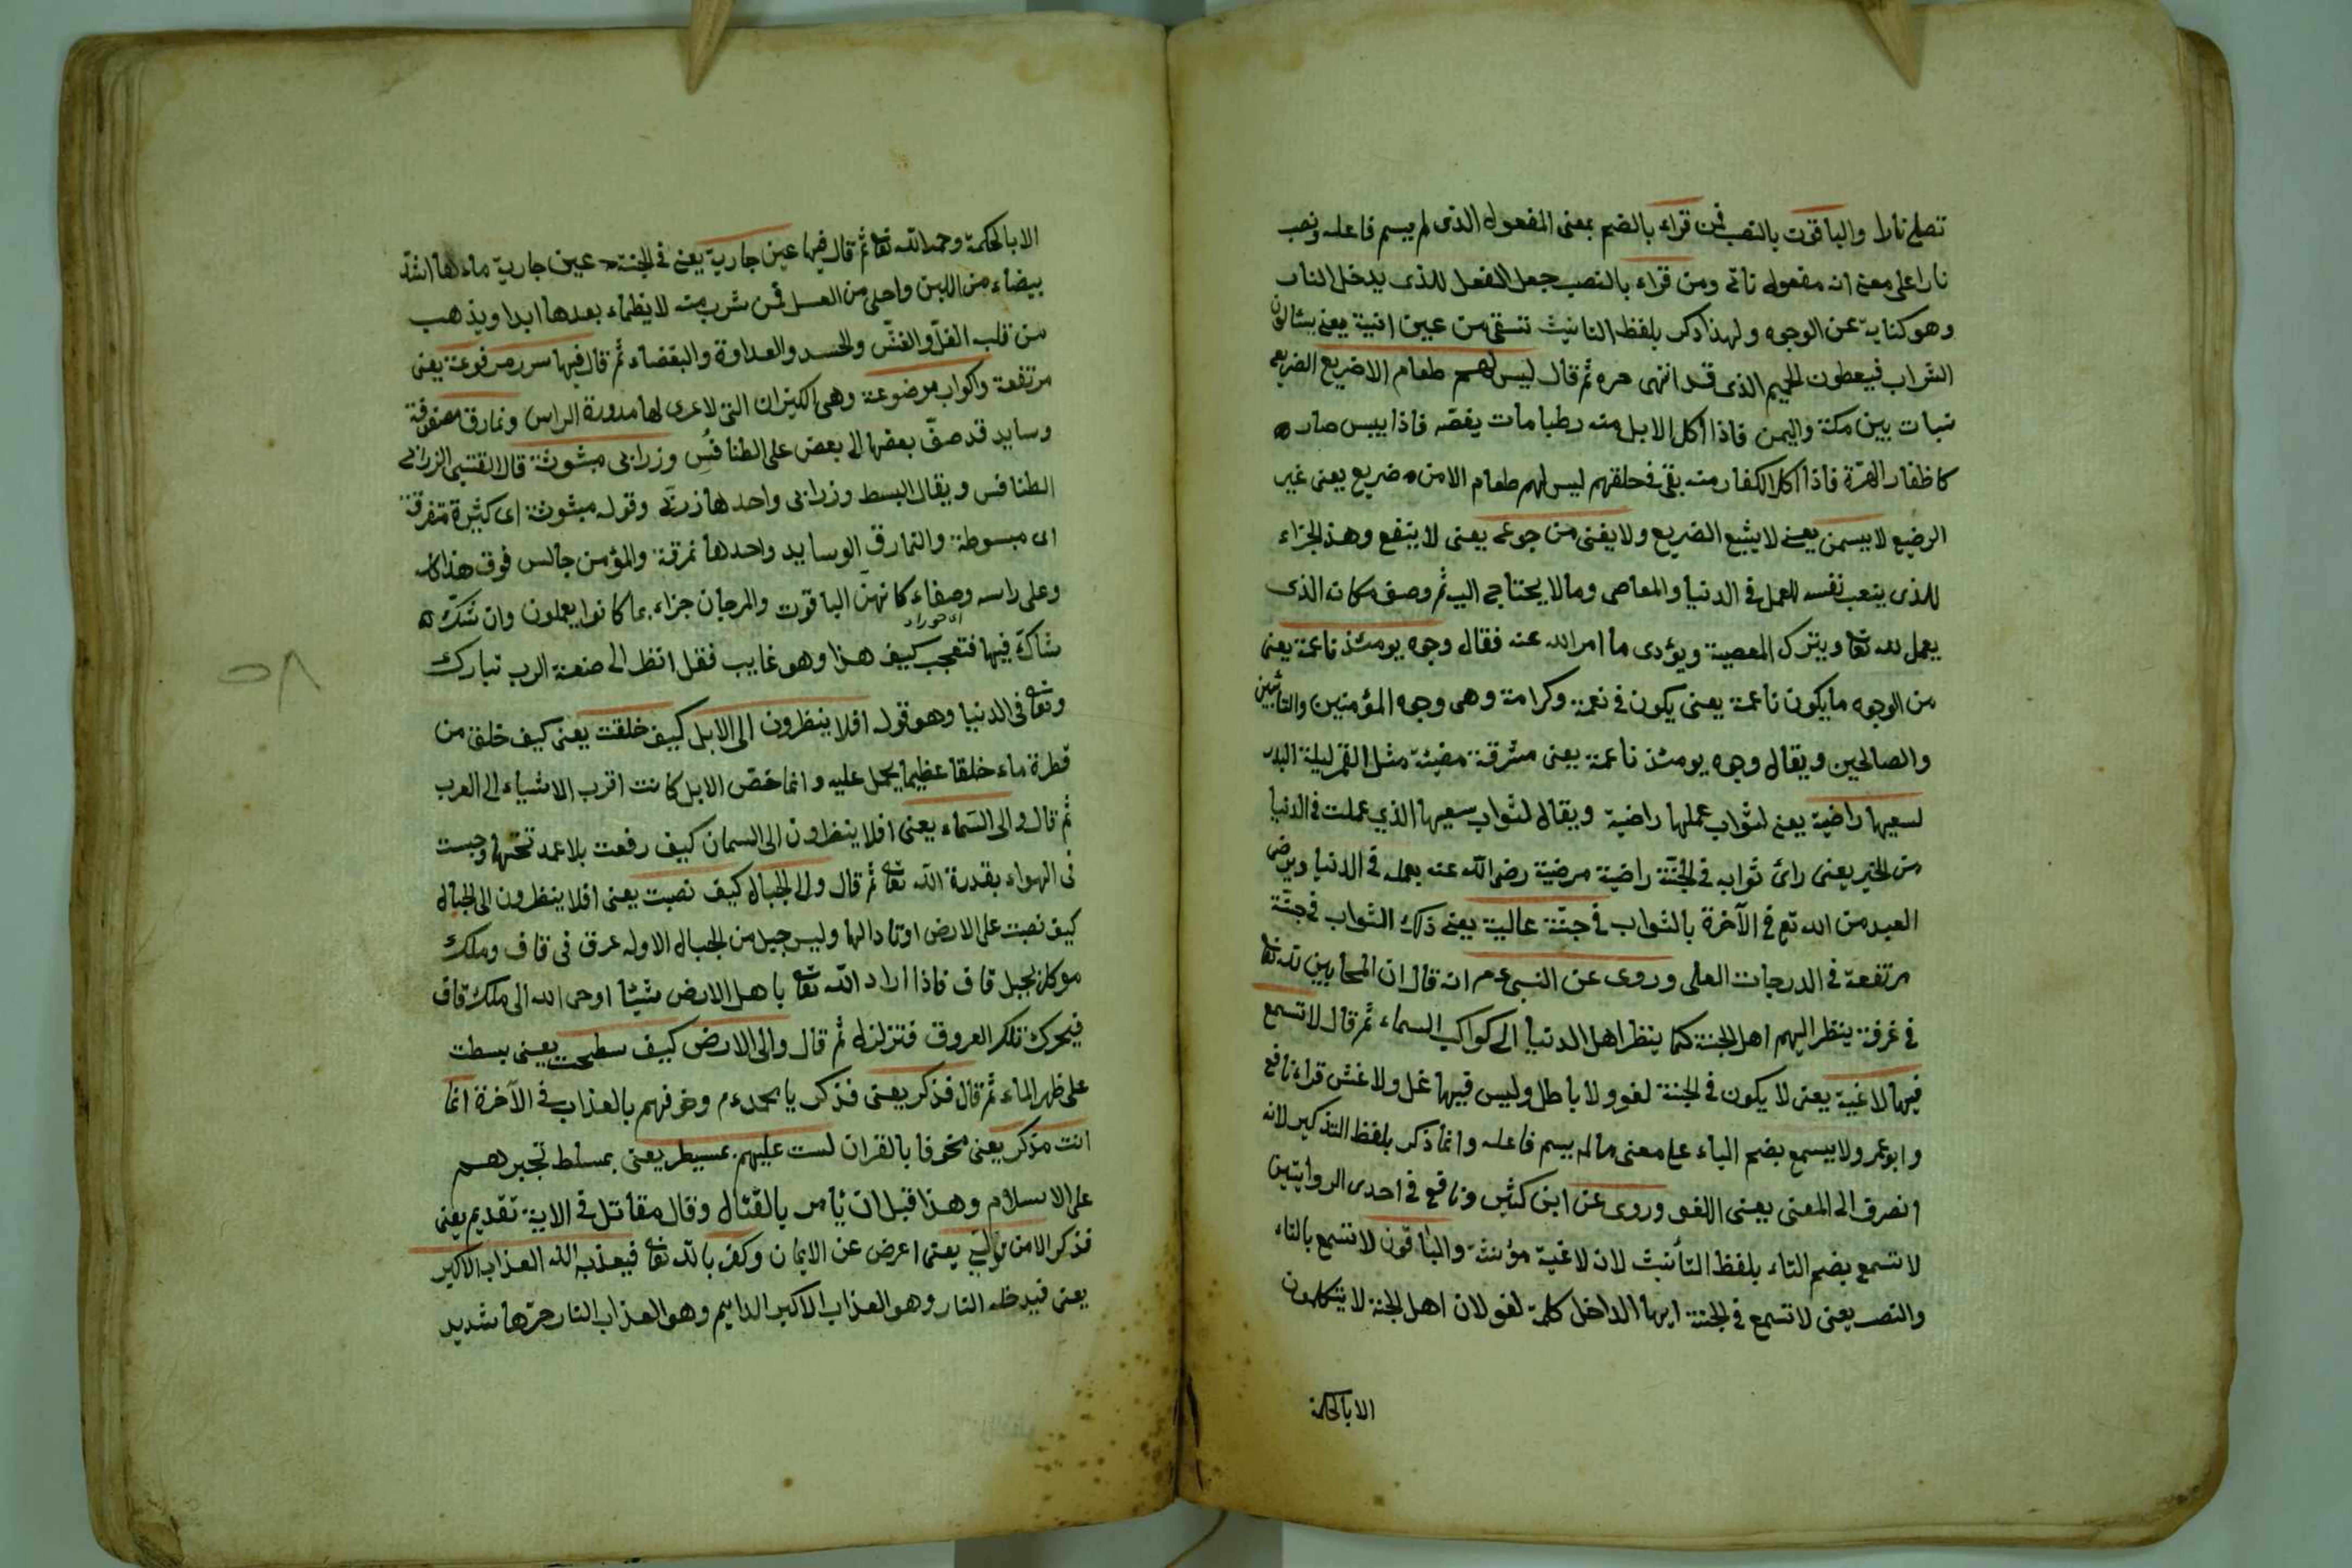 تصلى نارا والباقون بالنصب فمن قراء بالضم بمعنى المفعول الذى لم يسم فاعله ونصب
نارا على معنى انه مفعول ثانى ومن قراء بالنصب جعل الفعل للذى يدخل النار
وهو كناية عن الوجوه ولهذا ذكر بلفظ التانيث تسقى من عين انية يعنى يسالون
الشراب فيعطون الحميم الذى قد انتهى حره ثم قال ليس لهم طعام الا ضريع الضريع
نبات بين مكة واليمن فاذا اكل الابل منه رطبا مات يغصّه فاذا يبس صاره
كاظفار الهرّة فاذا اكل الكفار منه بقى فى حلقهم ليس لهم طعام الا من ضريع يعنى غير
الرضيع لا يسمن يعنى لا يشبع الضريع ولا يغنى من جوع يعنى لا ينفع وهذ الجزاء
للذى يتعب نفسه للعمل فى الدنيا والمعاصى وما لا يحتاج اليه ثم وصف مكان الذى
يعمل لله تعا ويترك المعصية ويؤدى ما امر الله عنه فقال وجوه يومئذ ناعمة يعنى
من الوجوه ما يكون ناعمة يعنى يكون فى نعمة وكرامة وهى وجوه المؤمنين والتائبين
والصالحين ويقال وجوه يومئذ ناعمة يعنى مشرقة مضيئة مثل القمر ليلة البدر
لسعيها راضية يعنى لثواب عملها راضية ويقال لثواب سعيها الذي عملت فى الدنيا
من الخير يعنى رائ ثوابه فى الجنّة راضية مرضيّة رضى الله عنه بعمله فى الدنيا ويرضى
العبد من الله تع فى الآخرة بالثواب فى جنّة عالية يعنى ذلك الثواب فى جنّة
مرتفعة فى الدرجات العلى وروى عن النبى عم انه قال ان المحابين لله تعا
فى غرفة ينظر اليهم اهل الجنة كما ينظر اهل الدنيا الى كواكب السماء ثم قال لا تسمع
فيها لاغية يعنى لا يكون فى الجنة لغو ولا باطل وليس فيها غل ولا غش قراء نافع
وابو عمرو لا يسمع بضم الياء على معنى ما لم يسم فاعله وانما ذكر بلفظ التذكير لانه
انصرف الى المعنى يعنى اللغو وروى عن ابن كثير ونافع فى احدى الروايتين
لا تسمع بضم التاء بلفظ التأنيث لان لاغية مؤنثة والباقون لا تسمع بالتاء
والنصب يعنى لا تسمع فى الجنة ايها الداخل كلمة لغو لان اهل الجنة لا يتكلمون
الا بالحكمة
الا بالحكمة وحمد الله تعا ثم قال فيها عين جارية يعنى فى الجنة عين جارية ماءها اشدّ
بيضاء من اللبن واحلى من العسل فمن شرب منه لا يظماء بعدها ابدا ويذهب
من قلبه الغلّ والغشّ والحسد والعداوة والبغضاء ثم قال فيها سرر مرفوعة يعنى
مرتفعة واكواب موضوعة وهى الكيزان التى لا عرى لها مدورة الراس ونمارق مصفوفة
وسايد قد صفّ بعضها الى بعض على الطنافس وزرابى مبثوثة قال القتبى الزرابى
الطنافس ويقال البسط وزرابى واحدها زربى وقوله مبثوثة اى كثيرة متفرقة
اى مبسوطة والنمارق الوسايد واحدها نمرقة والمؤمن جالس فوق هذا كله
وعلى راسه وصفاء كانهنّ الياقوت والمرجان جزاء بما كانوا يعملون وان شكّ
شاكّ فيها فتعجب كيف هذا وهو غايب فقل انظر الى صنعة الرب تبارك
وتعا فى الدنيا وهو قوله افلا ينظرون الى الابل كيف خلقت يعنى كيف خلق من
قطرة ماء خلقا عظيما يحمل عليه وانما خصّ الابل كانت اقرب الاشياء الى العرب
ثم قال والى السّماء يعنى افلا ينظرون الى السمان كيف رفعت بلا عمد تحتها وحبست
فى الهواء بقدرة الله تعا ثم قال والى الجبال كيف نصبت يعنى افلا ينظرون الى الجبال
كيف نصبت على الارض اوتادا لها وليس جبل من الجبال الا وله عرق فى قاف وملك
موكل بجبل قاف فاذا اراد الله تعا باهل الارض شيئا اوحى الله الى ملك قاف
فيحرك تلك العروق فتزلزله ثم قال والى الارض كيف سطحت يعنى بسطت
على ظهر الماء ثم قال فذكر يعنى فذكر يا محمد عم وخوفهم بالعذاب فى الآخرة انما
انت مذكر يعنى مخوفا بالقران لست عليهم بمسيطر يعنى بمسلط تجبرهم
على الاسلام وهذا قبل ان يأمر بالقتال وقال مقاتل فى الاية تقديم يعنى
فذكر الا من تولى يعنى اعرض عن الايمان وكفر بالله تعا فيعذبه الله العذاب الاكبر
يعنى فيدخله النار وهو العذاب الاكبر الدايم وهو العذاب النار حرّها شديد
٥٨